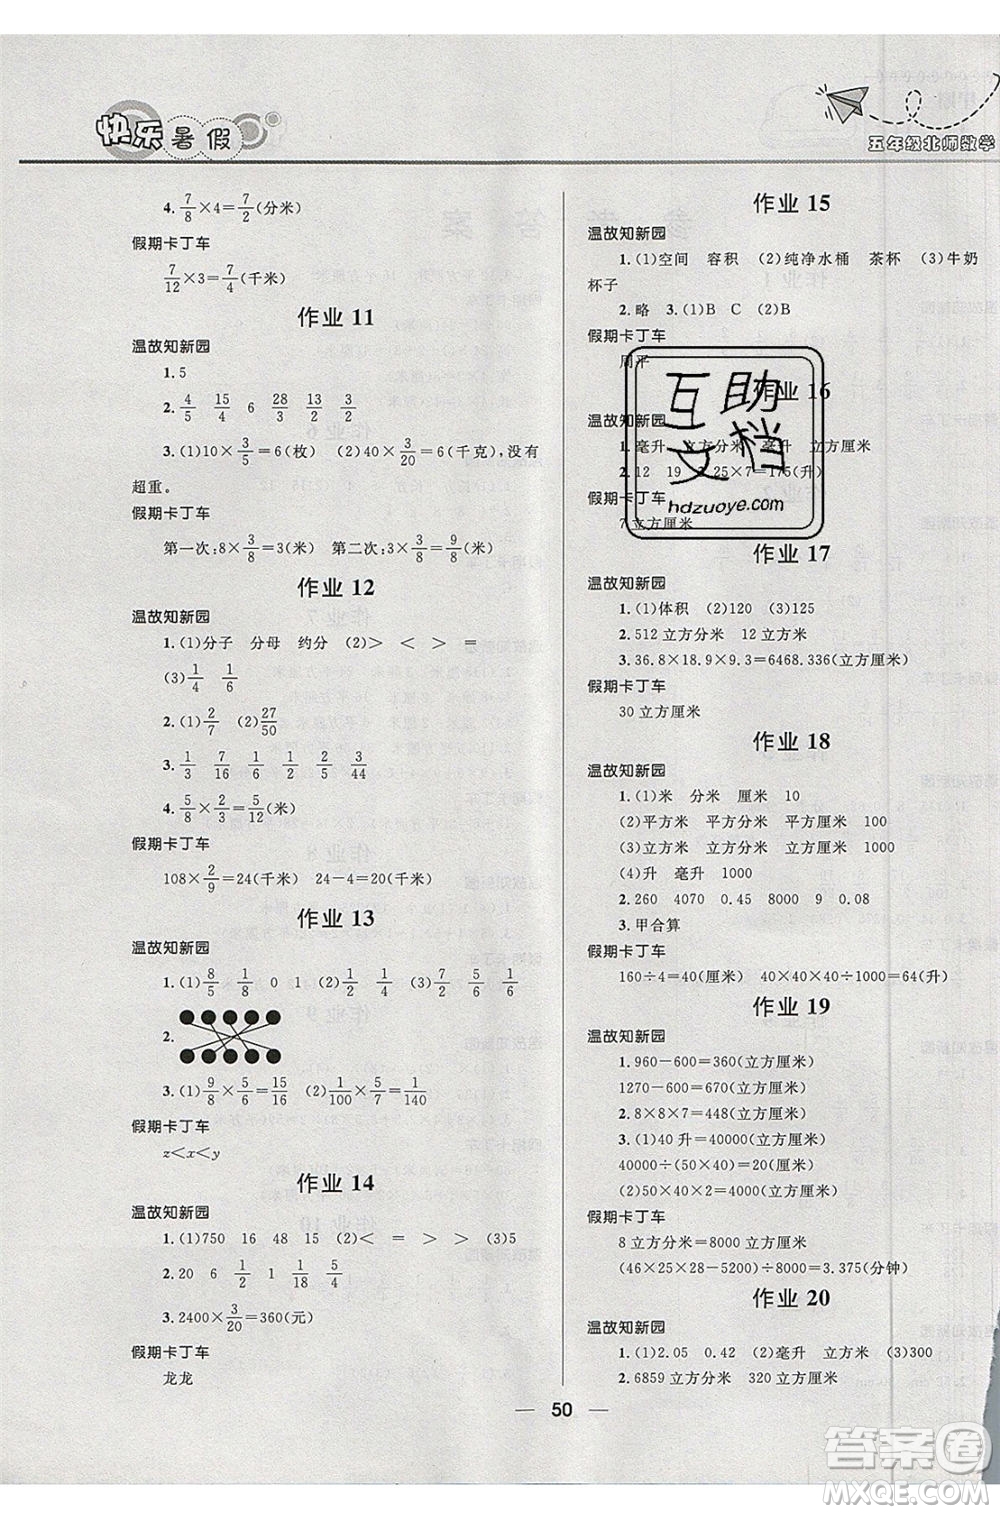 快乐暑假
五年级北师数学
4. 7/8×4=7/2(分米)
假期卡丁车
7/12×3=7/4(千米)
作业 11
温故知新园
1.5
2. 4/5 15/4 6 28/3 13/2 3/2
3.(1)10×3/5=6(枚) (2)40×3/20=6(千克),没有
超重。
假期卡丁车
第一次:8×3/8=3(米) 第二次:3×3/8=9/8(米)
作业 12
温故知新园
1.(1)分子 分母 约分 (2)> < > =
(3)1/4 1/6
2.(1)2/7 (2)27/50
3. 1/3 7/16 1/6 1/2 2/5 3/44
4. 5/8×2/3=5/12(米)
假期卡丁车
108×2/9=24(千米) 24-4=20(千米)
作业 13
温故知新园
1.(1)8/5 1/8 0 1 (2)1/2 1/4 (3)7/5 5/2 1/6
2.
3.(1)9/8×5/6=15/16 (2)1/100×5/7=1/140
假期卡丁车
z<x<y
作业 14
温故知新园
1.(1)750 16 48 15 (2)< = > > (3)5
2.20 6 1/2 3/4 18 5/4
3.2400×3/20=360(元)
假期卡丁车
龙龙
作业 15
温故知新园
1.(1)空间 容积 (2)纯净水桶 茶杯 (3)牛奶
杯子
2.略 3.(1)B C (2)B
假期卡丁车
周平
作业 16
温故知新园
1.毫升 立方分米 毫升 立方厘米
2.12 19 3.25×7=175(升)
假期卡丁车
7立方厘米
互助文档
hdzuoye.com
作业 17
温故知新园
1.(1)体积 (2)120 (3)125
2.512立方分米 12立方米
3.36.8×18.9×9.3=6468.336(立方厘米)
假期卡丁车
30立方厘米
作业 18
温故知新园
1.(1)米 分米 厘米 10
(2)平方米 平方分米 平方厘米 100
(3)立方米 立方分米 立方厘米 1000
(4)升 毫升 1000
2.260 4070 0.45 8000 9 0.08
3.甲合算
假期卡丁车
160÷4=40(厘米) 40×40×40÷1000=64(升)
作业 19
温故知新园
1.960-600=360(立方厘米)
1270-600=670(立方厘米)
2.8×8×7=448(立方厘米)
3.(1)40升=40000(立方厘米)
40000÷(50×40)=20(厘米)
(2)50×40×2=4000(立方厘米)
假期卡丁车
8立方分米=8000立方厘米
(46×25×28-5200)÷8000=3.375(分钟)
作业 20
温故知新园
1.(1)2.05 0.42 (2)毫升 立方米 (3)300
2.6859立方分米 320立方厘米
50
答案圈
MXQE.COM